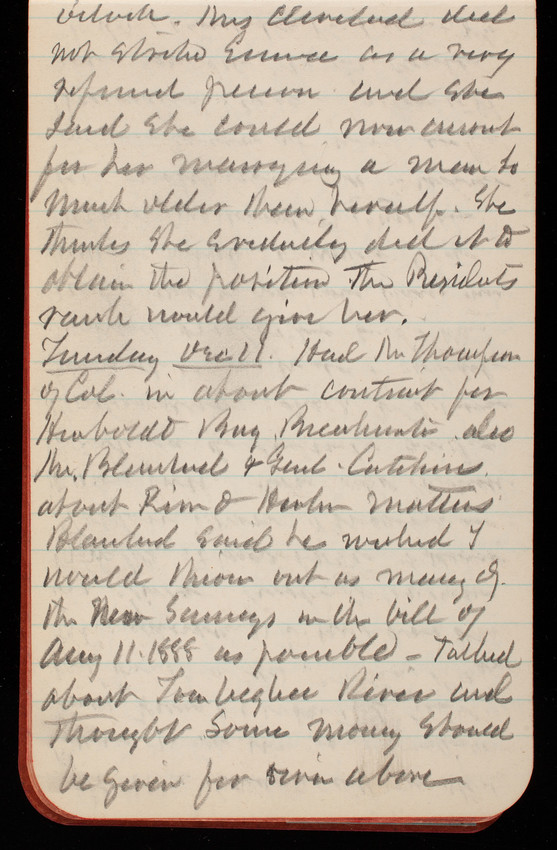 Mrs Cleveland did
not strike Emma as a very
refined person and she
said she could now account
for her marrying a man so
much older than herself. She
thinks she evidently did it to
obtain the position the Presidents
rank would give her.
Tuesday Dec 11. Had Mr Thompson
of Cal. in about contract for
Humboldt Bay Breakwater also
Mr. Blanchard & Genl. Catchins
about River & Harbor matters
Blanchard said he wished I
would throw out as many of
the New Surveys in the bill of
Aug 11. 1888 as possible - Talked
about Tombigbee River and
thought some money should
be given for river above